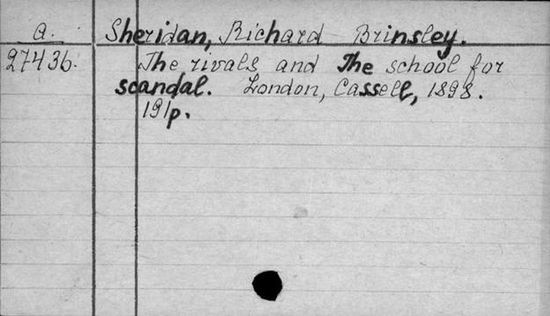 a. Sheridan, Richard Brinsley.
27436. The rivals and The school for
scandal. London, Cassell, 1898.
191p.